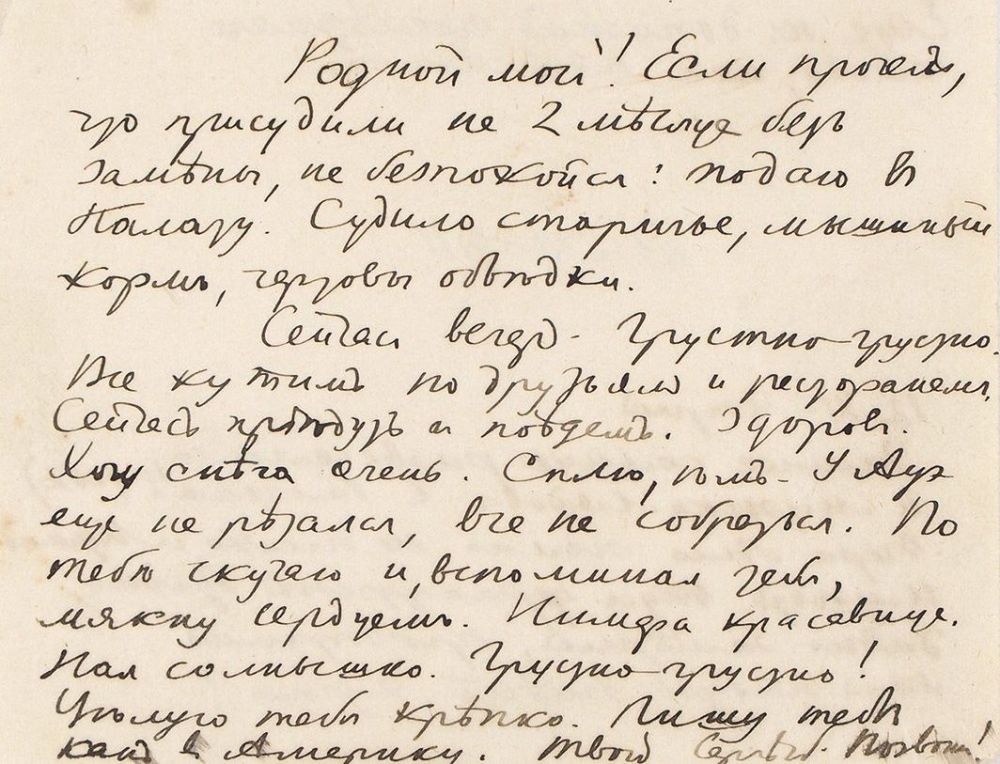 Родной мой! Если прочел,
что присудили на 2 мѣсяца безъ
замѣны, не безпокойся: подаю в
Палату. Судило старичье, мышиный
кормъ, чертовы объѣдки.
Сейчас вечер. Грустно-грустно.
Все кутимъ по друзьямъ и ресторанамъ.
Сейчасъ приѣдутъ и поѣдемъ. Здоровъ.
Хочу снѣга очень. Сплю, ѣмъ. У
еще не рѣзался, все не собрался. По
тебѣ скучаю и, вспоминая тебя,
мякну сердцемъ. Нимфа красавица.
Ная солнышко. Грустно-грустно!
Цѣлую тебя крѣпко. Пишу тебѣ
какъ в Америку. Твой Сергѣй. Позвони!